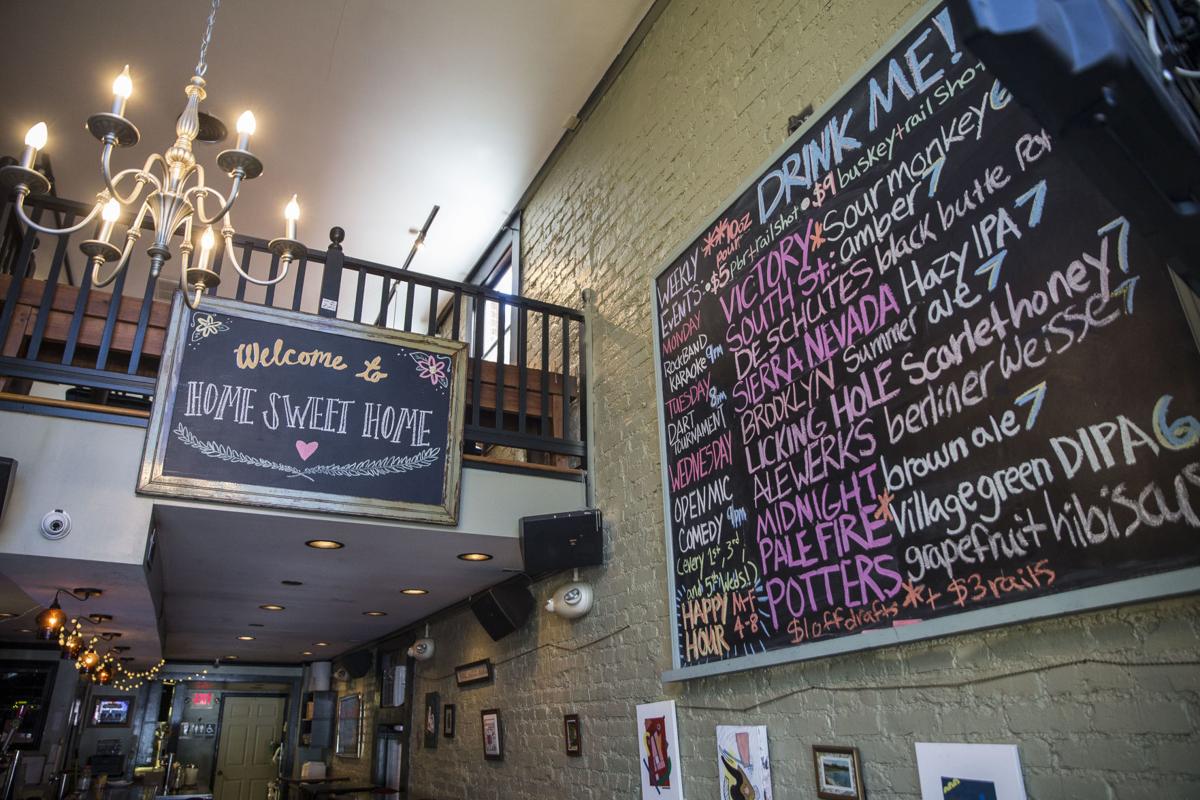 Welcome to
HOME SWEET HOME
DRINK ME!
**10oz pour
• $5 pbr+railshot • $9 buskey+railshot
WEEKLY
EVENTS:
MONDAY
ROCKBAND
KARAOKE 9pm
TUESDAY
DART 8pm
TOURNAMENT
WEDNESDAY
OPEN MIC
COMEDY 9pm
(every 1st, 3rd,
and 5th Weds!)
HAPPY M-F
HOUR 4-8
VICTORY* Sour monkey
SOUTH St.: amber 7
DESCHUTES black butte Por
SIERRA NEVADA Hazy IPA 7
BROOKLYN Summer ale 7
LICKING HOLE Scarlet honey 7
ALEWERKS berliner Weisse 7
MIDNIGHT brown ale 7
PALE FIRE* Village green DIPA 6
POTTERS grapefruit hibiscus
$1 off drafts* + $3 rails